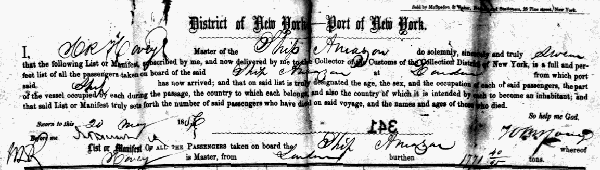 Sold by McSpedon & Baker, Stationers, 29 Pine street, New York.
District of New York—Port of New York.
I, H R Hovey Master of the Ship Amazon do solemnly, sincerely and truly Swear
that the following List or Manifest, subscribed by me, and now delivered by me to the Collector of the Customs of the Collection District of New York, is a full and per-
fect list of all the passengers taken on board of the said Ship Amazon at London from which port
said Ship has now arrived; and that on said list is truly designated the age, the sex, and the occupation of each of said passengers, the part
of the vessel occupied by each during the passage, the country to which each belongs, and also the country of which it is intended by each to become an inhabitant; and
that said List or Manifest truly sets forth the number of said passengers who have died on said voyage, and the names and ages of those who died.
So help me God.
Sworn to this 20 May 186
Before me
341
List or Manifest OF ALL THE PASSENGERS taken on board the Ship Amazon whereof
Hovey is Master, from London burthen 1771 tons.